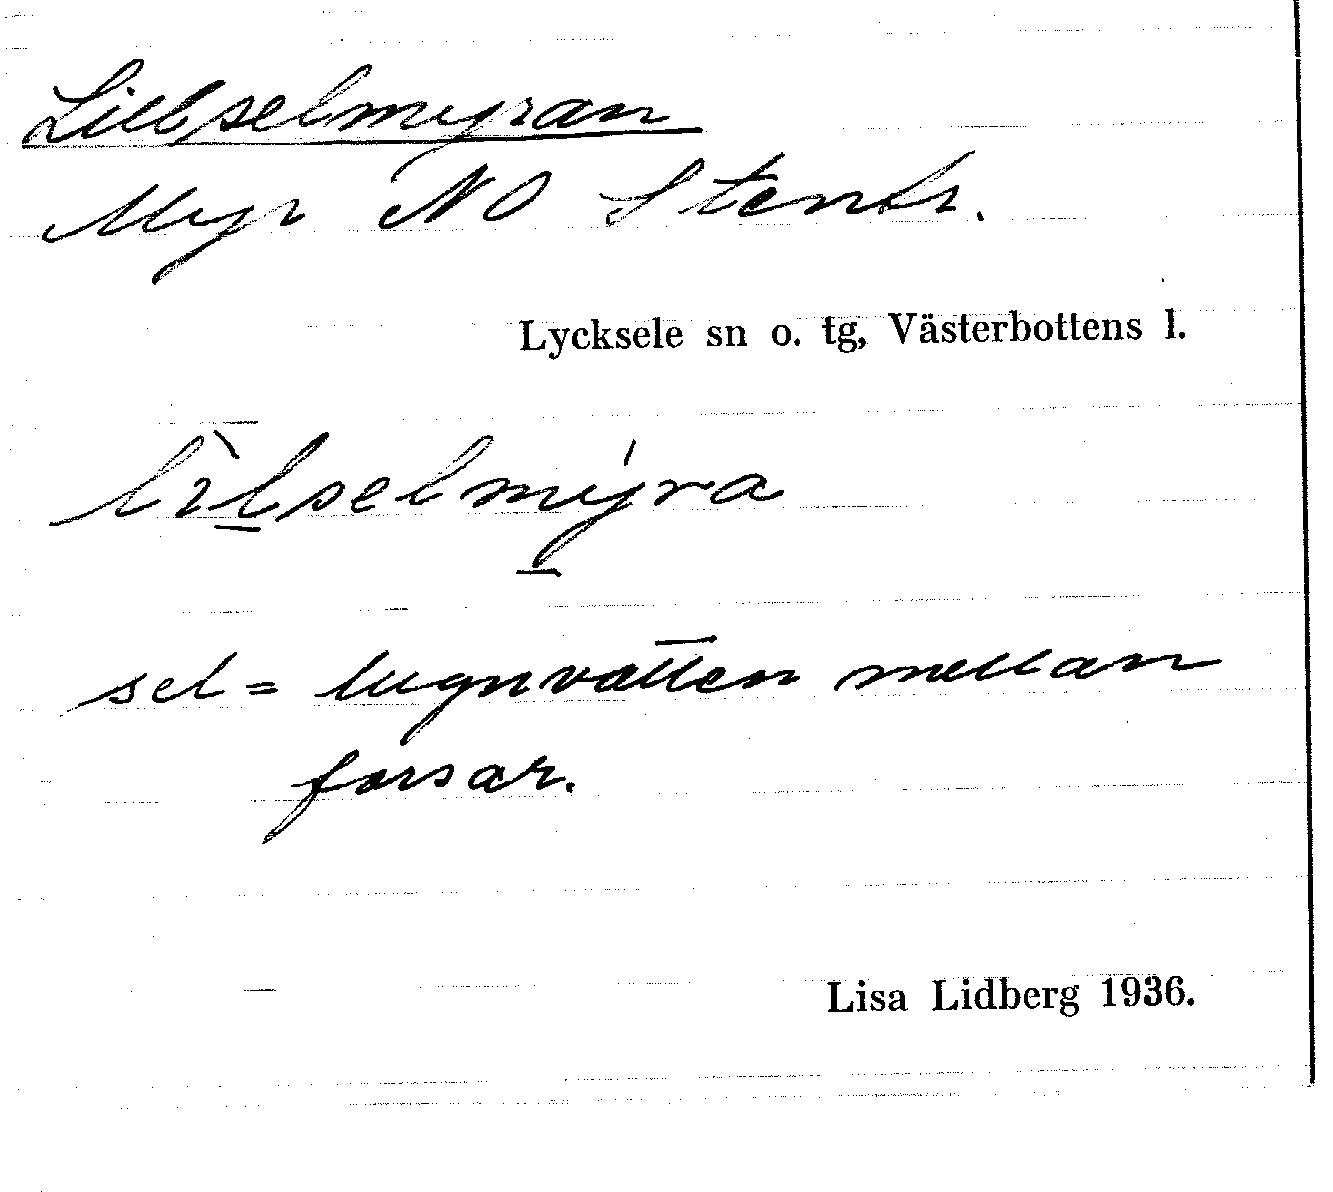 Lillselmyran
Myr NO Stentr.
Lycksele sn o. tg, Västerbottens l.
lìlselmýra
sel = lugnvatten mellan
forsar.
Lisa Lidberg 1936.